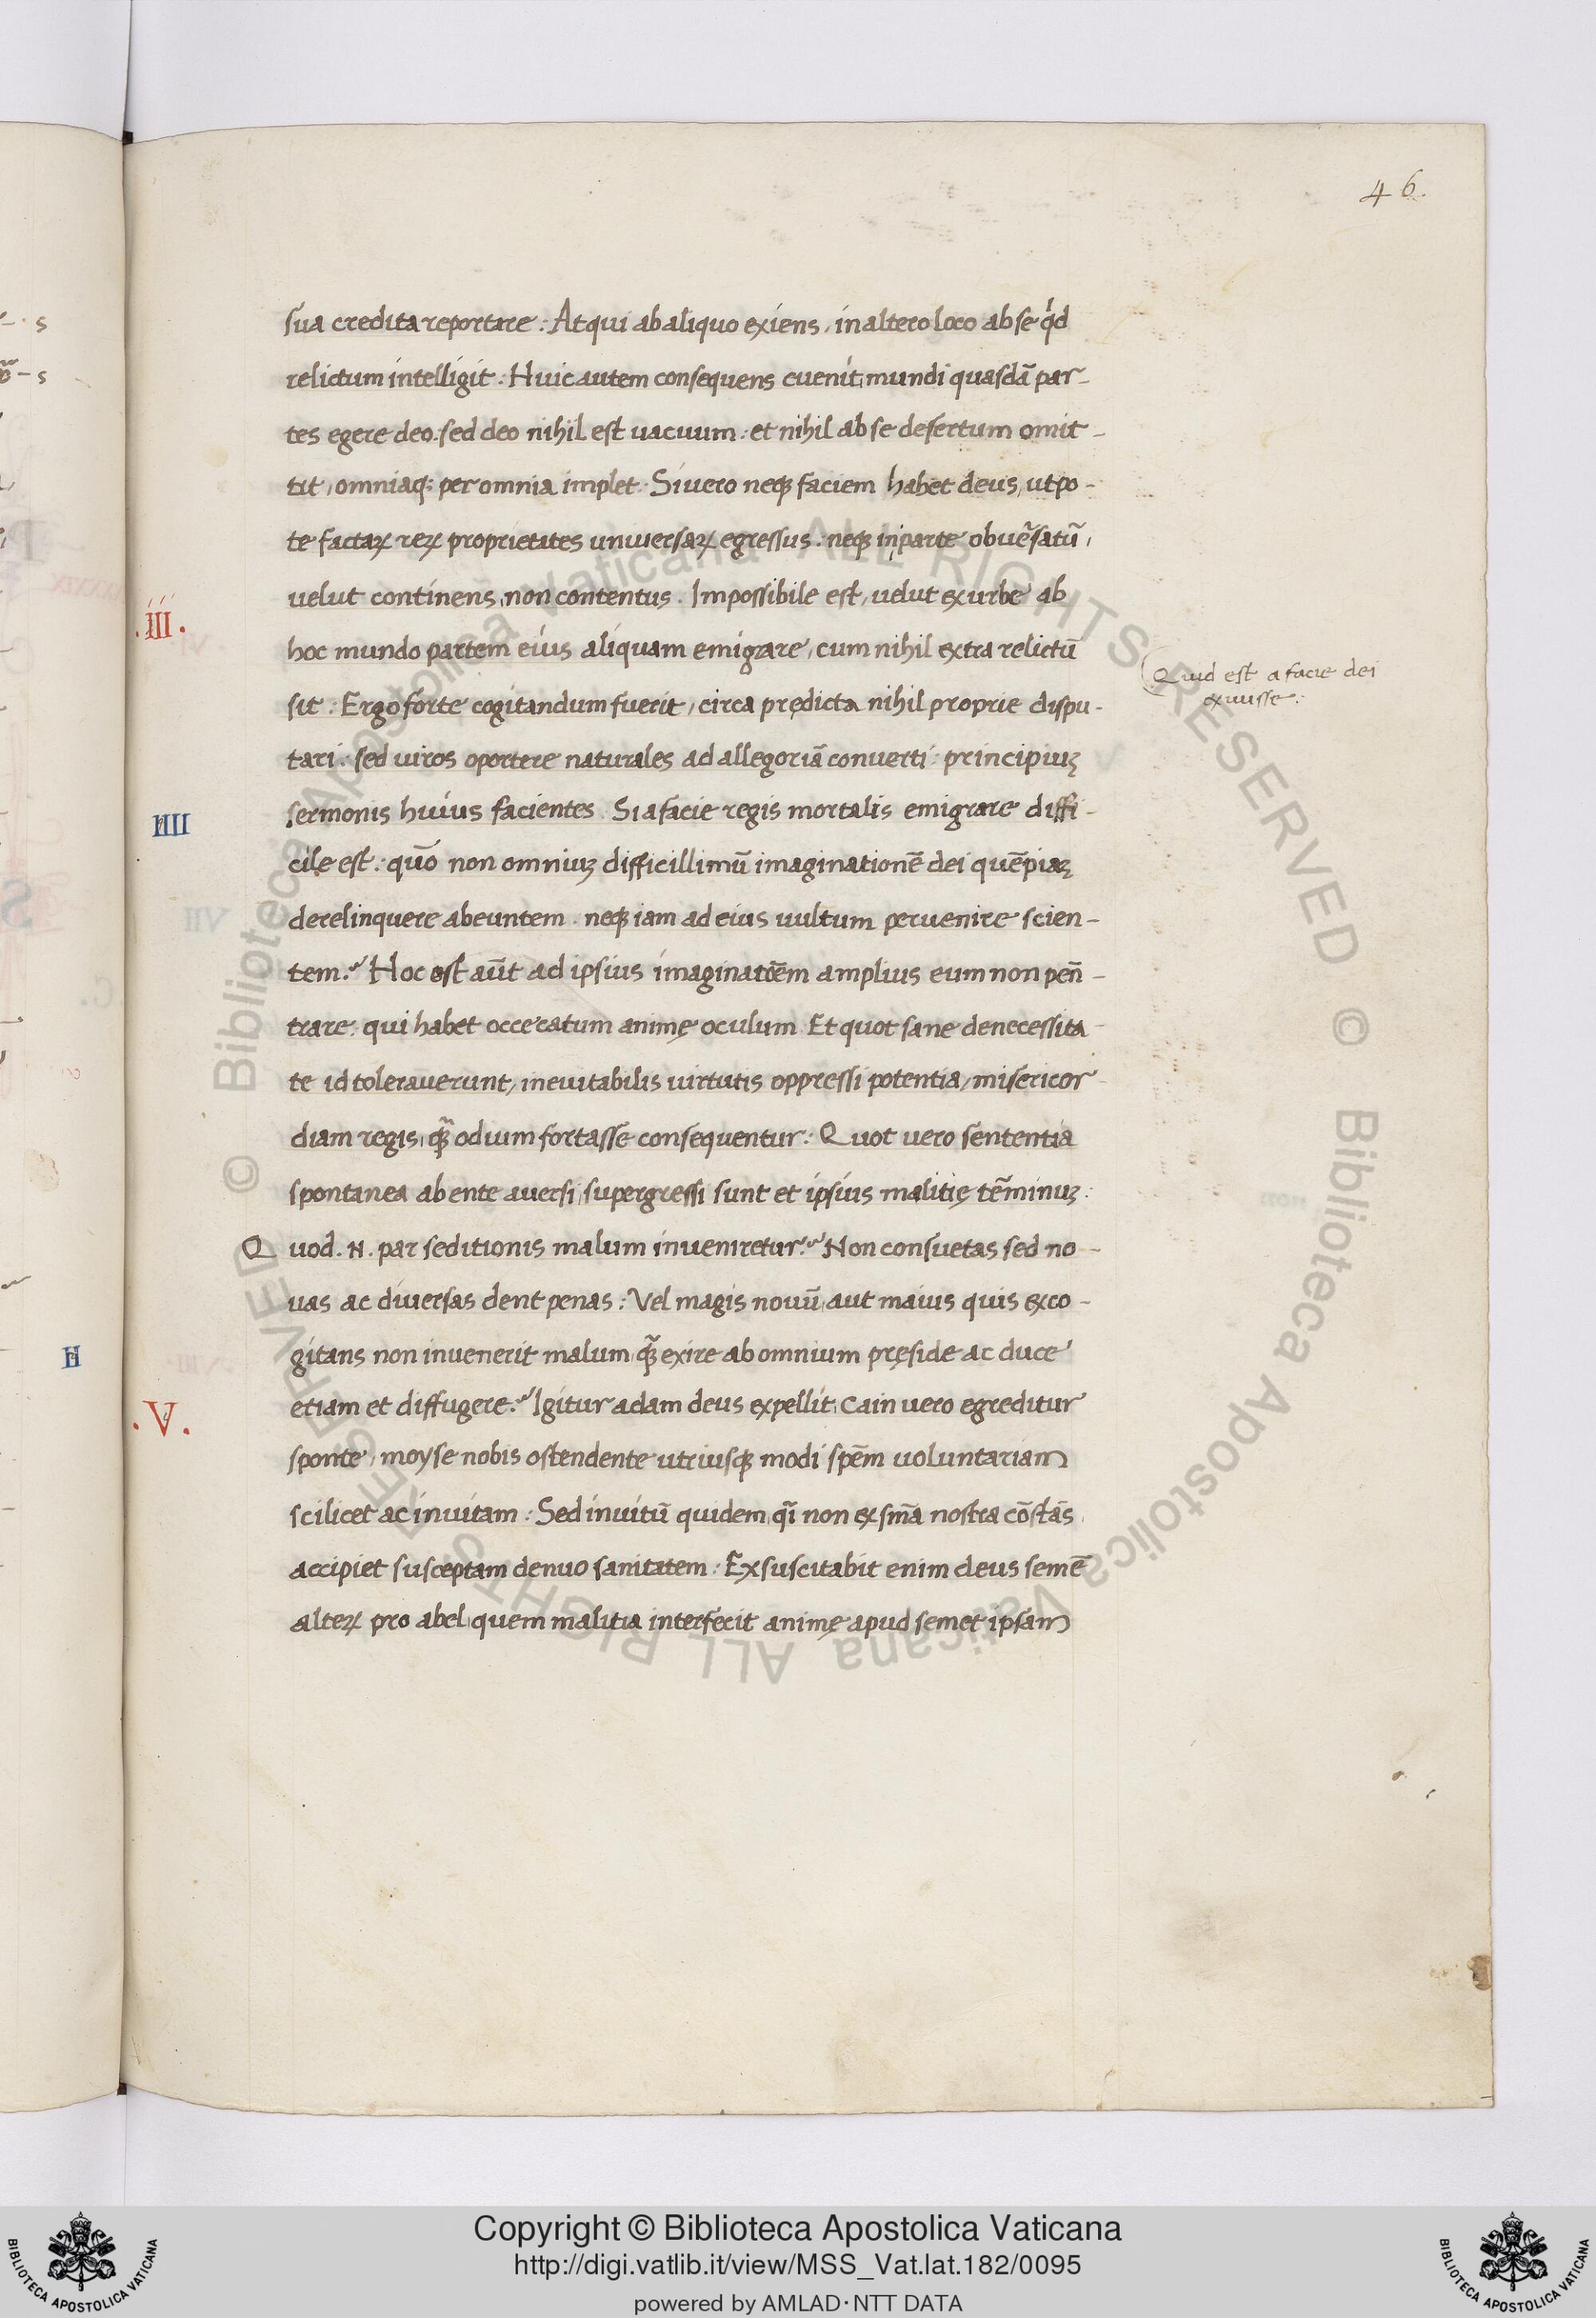 46
sua credita reportare : Atqui ab aliquo exiens, in altero loco ab se qd
relictum intelligit : Huic autem consequens euenit, mundi quasdā par-
tes egere deo : sed deo nihil est uacuum : et nihil ab se desertum omit-
tit, omniaq; per omnia implet : Si uero neq; faciem habet deus, utpo-
te factaꝝ reꝝ proprietates uniuersaꝝ egressus : neq; in parte obuēsatū,
uelut continens, non contentus . Impossibile est, uelut ex urbe ab
.III.
hoc mundo partem eius aliquam emigrare, cum nihil extra relictū
Quid est a facie dei
exiuisse :
sit : Ergo forte cogitandum fuerit, circa prędicta nihil proprie dispu-
tari : sed uiros oportere naturales ad allegoriā conuerti : principiuꝫ
IIII
sermonis huius facientes Si a facie regis mortalis emigrare diffi-
cile est : quō non omniuꝫ difficillimū imaginationē dei quēpiaꝫ
derelinquere abeuntem . neq; iam ad eius uultum peruenire scien-
tem ? Hoc est aūt ad ipsius imaginatōem amplius eum non pen̄-
trare : qui habet occecatum animę oculum Et quot sane de necessita-
te id tolerauerunt, ineuitabilis uirtutis oppressi potentia, misericor-
diam regis, q̄ꝫ odium fortasse consequentur : Quot uero sententia
spontanea ab ente auersi, supergressi sunt et ipsius malitię tēminuꝫ :
Quod . N . par seditionis malum inueniretur ? Non consuetas sed no-
uas ac diuersas dent penas : Vel magis nouū, aut maius quis exco-
gitans non inuenerit malum q̄ꝫ exire ab omnium pręside ac duce
.V.
etiam et diffugere ? Igitur adam deus expellit, Cain uero egreditur
sponte, moyse nobis ostendente utriusq; modi spēm uoluntariam
scilicet ac inuitam : Sed inuitū quidem, qī non ex smā nostra cōstās,
accipiet susceptam denuo sanitatem : Exsuscitabit enim deus semē
alteꝝ pro abel, quem malitia interfecit animę apud semet ipsam
H
© Biblioteca Apostolica Vaticana ALL RIGHTS RESERVED © Biblioteca Apostolica Vaticana ALL RIGHTS RESERVED
Copyright © Biblioteca Apostolica Vaticana
http://digi.vatlib.it/view/MSS_Vat.lat.182/0095
powered by AMLAD·NTT DATA
BIBLIOTECA APOSTOLICA VATICANA
BIBLIOTECA APOSTOLICA VATICANA